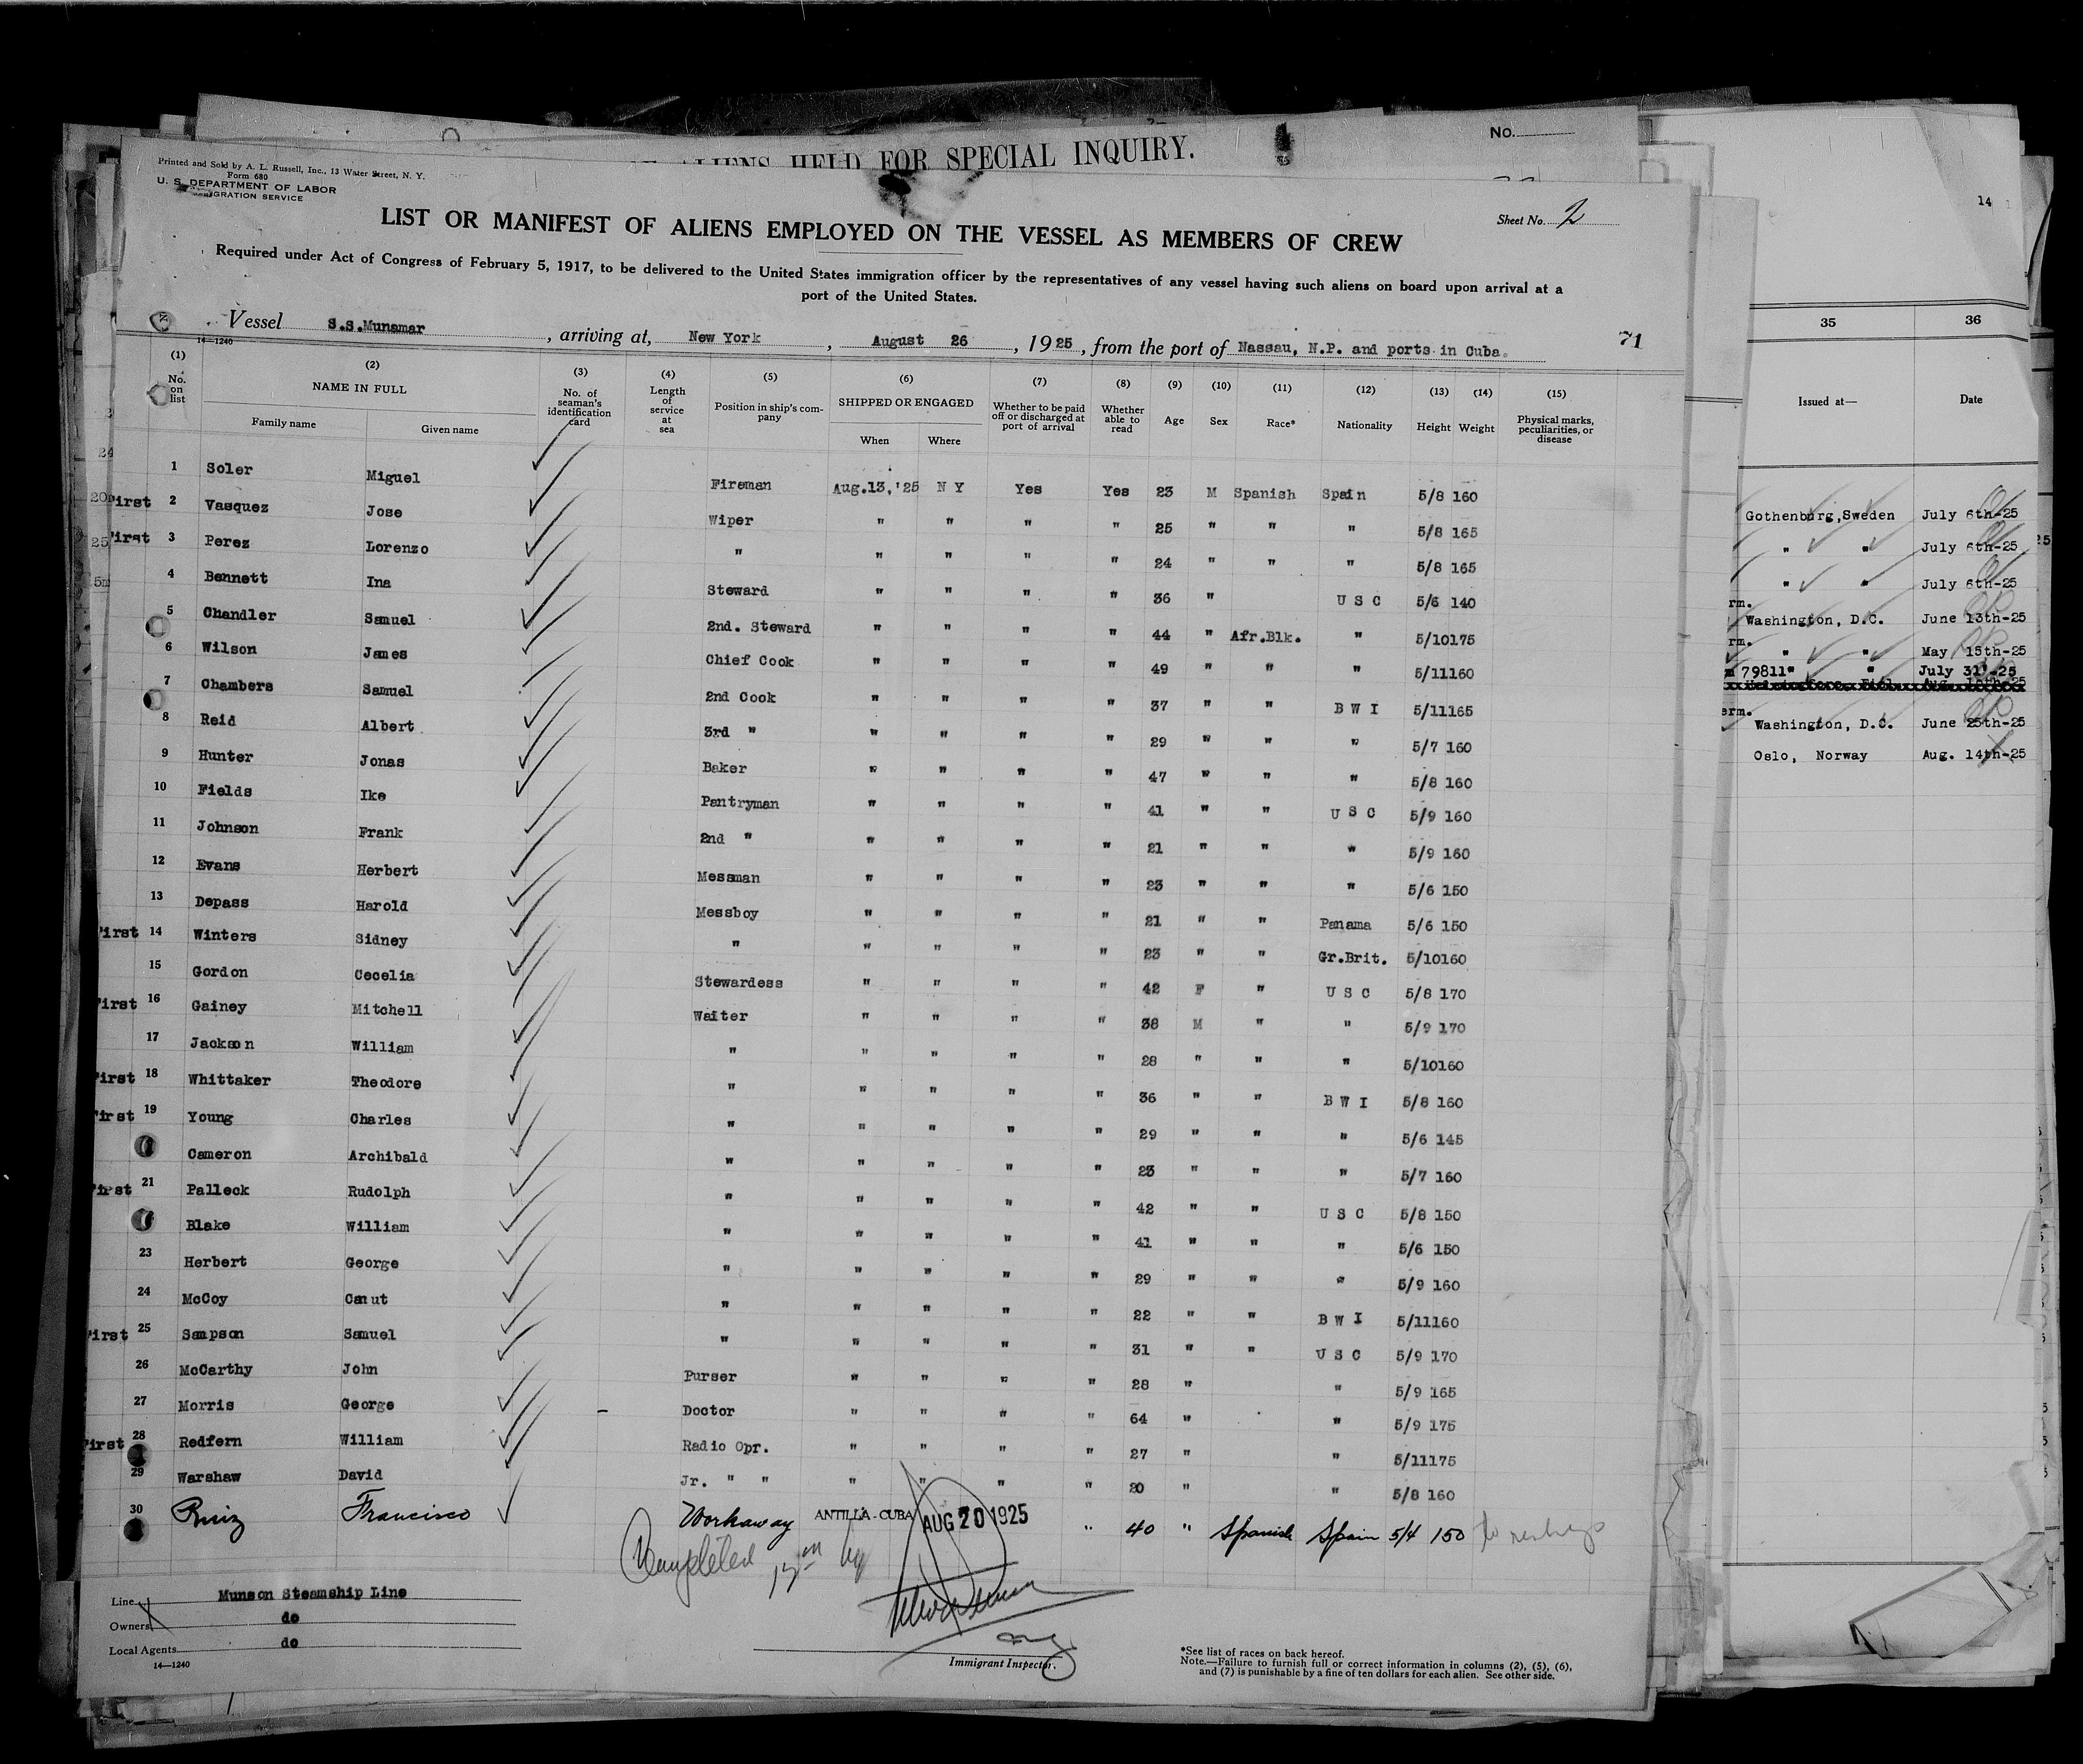 ALIENS HELD FOR SPECIAL INQUIRY.
No.
Printed and Sold by A. L. Russell, Inc., 13 Water Street, N. Y.
Form 680
U. S. DEPARTMENT OF LABOR
IMMIGRATION SERVICE
Sheet No. 2
LIST OR MANIFEST OF ALIENS EMPLOYED ON THE VESSEL AS MEMBERS OF CREW
Required under Act of Congress of February 5, 1917, to be delivered to the United States immigration officer by the representatives of any vessel having such aliens on board upon arrival at a
port of the United States.
Vessel S.S.Munamar, arriving at, New York, August 26, 1925, from the port of Nassau, N.P. and ports in Cuba.
71
14—1240
(1) (2) (3) (4) (5) (6) (7) (8) (9) (10) (11) (12) (13) (14) (15)
No. on list NAME IN FULL Family name Given name No. of seaman's identification card Length of service at sea Position in ship's company SHIPPED OR ENGAGED When Where Whether to be paid off or discharged at port of arrival Whether able to read Age Sex Race* Nationality Height Weight Physical marks, peculiarities, or disease
1 Soler Miguel Fireman Aug.13,'25 N Y Yes Yes 23 M Spanish Spain 5/8 160
First 2 Vasquez Jose Wiper " " " " 25 " " " 5/8 165
First 3 Perez Lorenzo " " " " " 24 " " " 5/8 165
4 Bennett Ina Steward " " " " 36 " U S C 5/6 140
5 Chandler Samuel 2nd. Steward " " " " 44 " Afr.Blk. " 5/10175
6 Wilson James Chief Cook " " " " 49 " " " 5/11160
7 Chambers Samuel 2nd Cook " " " " 37 " " B W I 5/11165
8 Reid Albert 3rd " " " " " 29 " " " 5/7 160
9 Hunter Jonas Baker " " " " 47 " " " 5/8 160
10 Fields Ike Pantryman " " " " 41 " " U S C 5/9 160
11 Johnson Frank 2nd " " " " " 21 " " " 5/9 160
12 Evans Herbert Messman " " " " 23 " " " 5/6 150
13 Depass Harold Messboy " " " " 21 " " Panama 5/6 150
First 14 Winters Sidney " " " " " 23 " " Gr.Brit. 5/10160
15 Gordon Cecelia Stewardess " " " " 42 F " U S C 5/8 170
First 16 Gainey Mitchell Waiter " " " " 38 M " " 5/9 170
17 Jackson William " " " " " 28 " " " 5/10160
First 18 Whittaker Theodore " " " " " 36 " " B W I 5/8 160
First 19 Young Charles " " " " " 29 " " " 5/6 145
Cameron Archibald " " " " " 23 " " " 5/7 160
First 21 Palleck Rudolph " " " " " 42 " " U S C 5/8 150
Blake William " " " " " 41 " " " 5/6 150
23 Herbert George " " " " " 29 " " " 5/9 160
24 McCoy Canut " " " " " 22 " " B W I 5/11160
First 25 Sampson Samuel " " " " " 31 " " U S C 5/9 170
26 McCarthy John Purser " " " " 28 " " 5/9 165
27 Morris George Doctor " " " " 64 " " 5/9 175
First 28 Redfern William Radio Opr. " " " " 27 " " 5/11175
29 Warshaw David Jr. " " " " " " 20 " " 5/8 160
30 Ruiz Francisco Workaway ANTILLA-CUBA AUG 20 1925 " 40 " Spanish Spain 5/4 150
Completed
Line Munson Steamship Line
Owners do
Local Agents do
14—1240
Immigrant Inspector.
*See list of races on back hereof.
Note.—Failure to furnish full or correct information in columns (2), (5), (6),
and (7) is punishable by a fine of ten dollars for each alien. See other side.
14
35 36
Issued at— Date
Gothenburg,Sweden July 6th-25
" " July 6th-25
" " July 6th-25
rm.
Washington, D.C. June 13th-25
rm.
" " May 15th-25
79811" " July 31'-25
erm.
Washington, D.C. June 25th-25
Oslo, Norway Aug. 14th-25